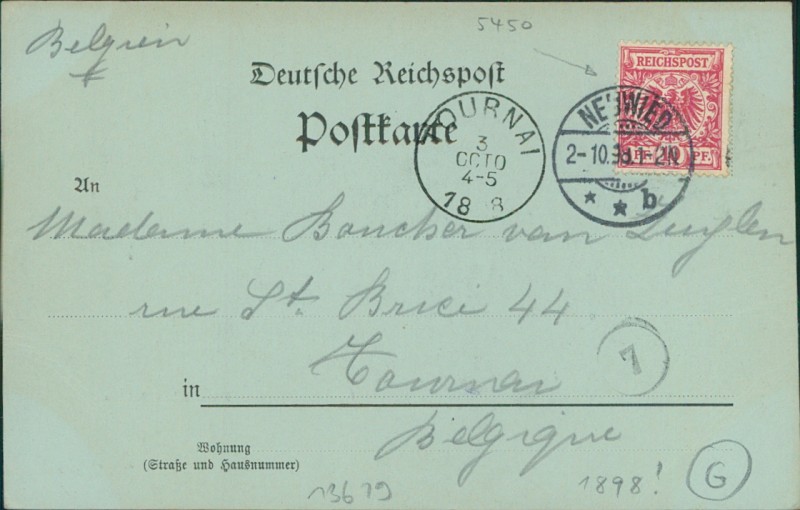 5450
Belgien
REICHSPOST
Deutsche Reichspost
NEUWIED
Postkarte
TOURNAI
3
OCTO
4-5
18 8
2-10.98.1-2N
PF.
b
An
Madame Boucher van
rue St. Brice 44
7
in Tournai
Belgique
Wohnung
(Straße und Hausnummer)
13679
1898!
G